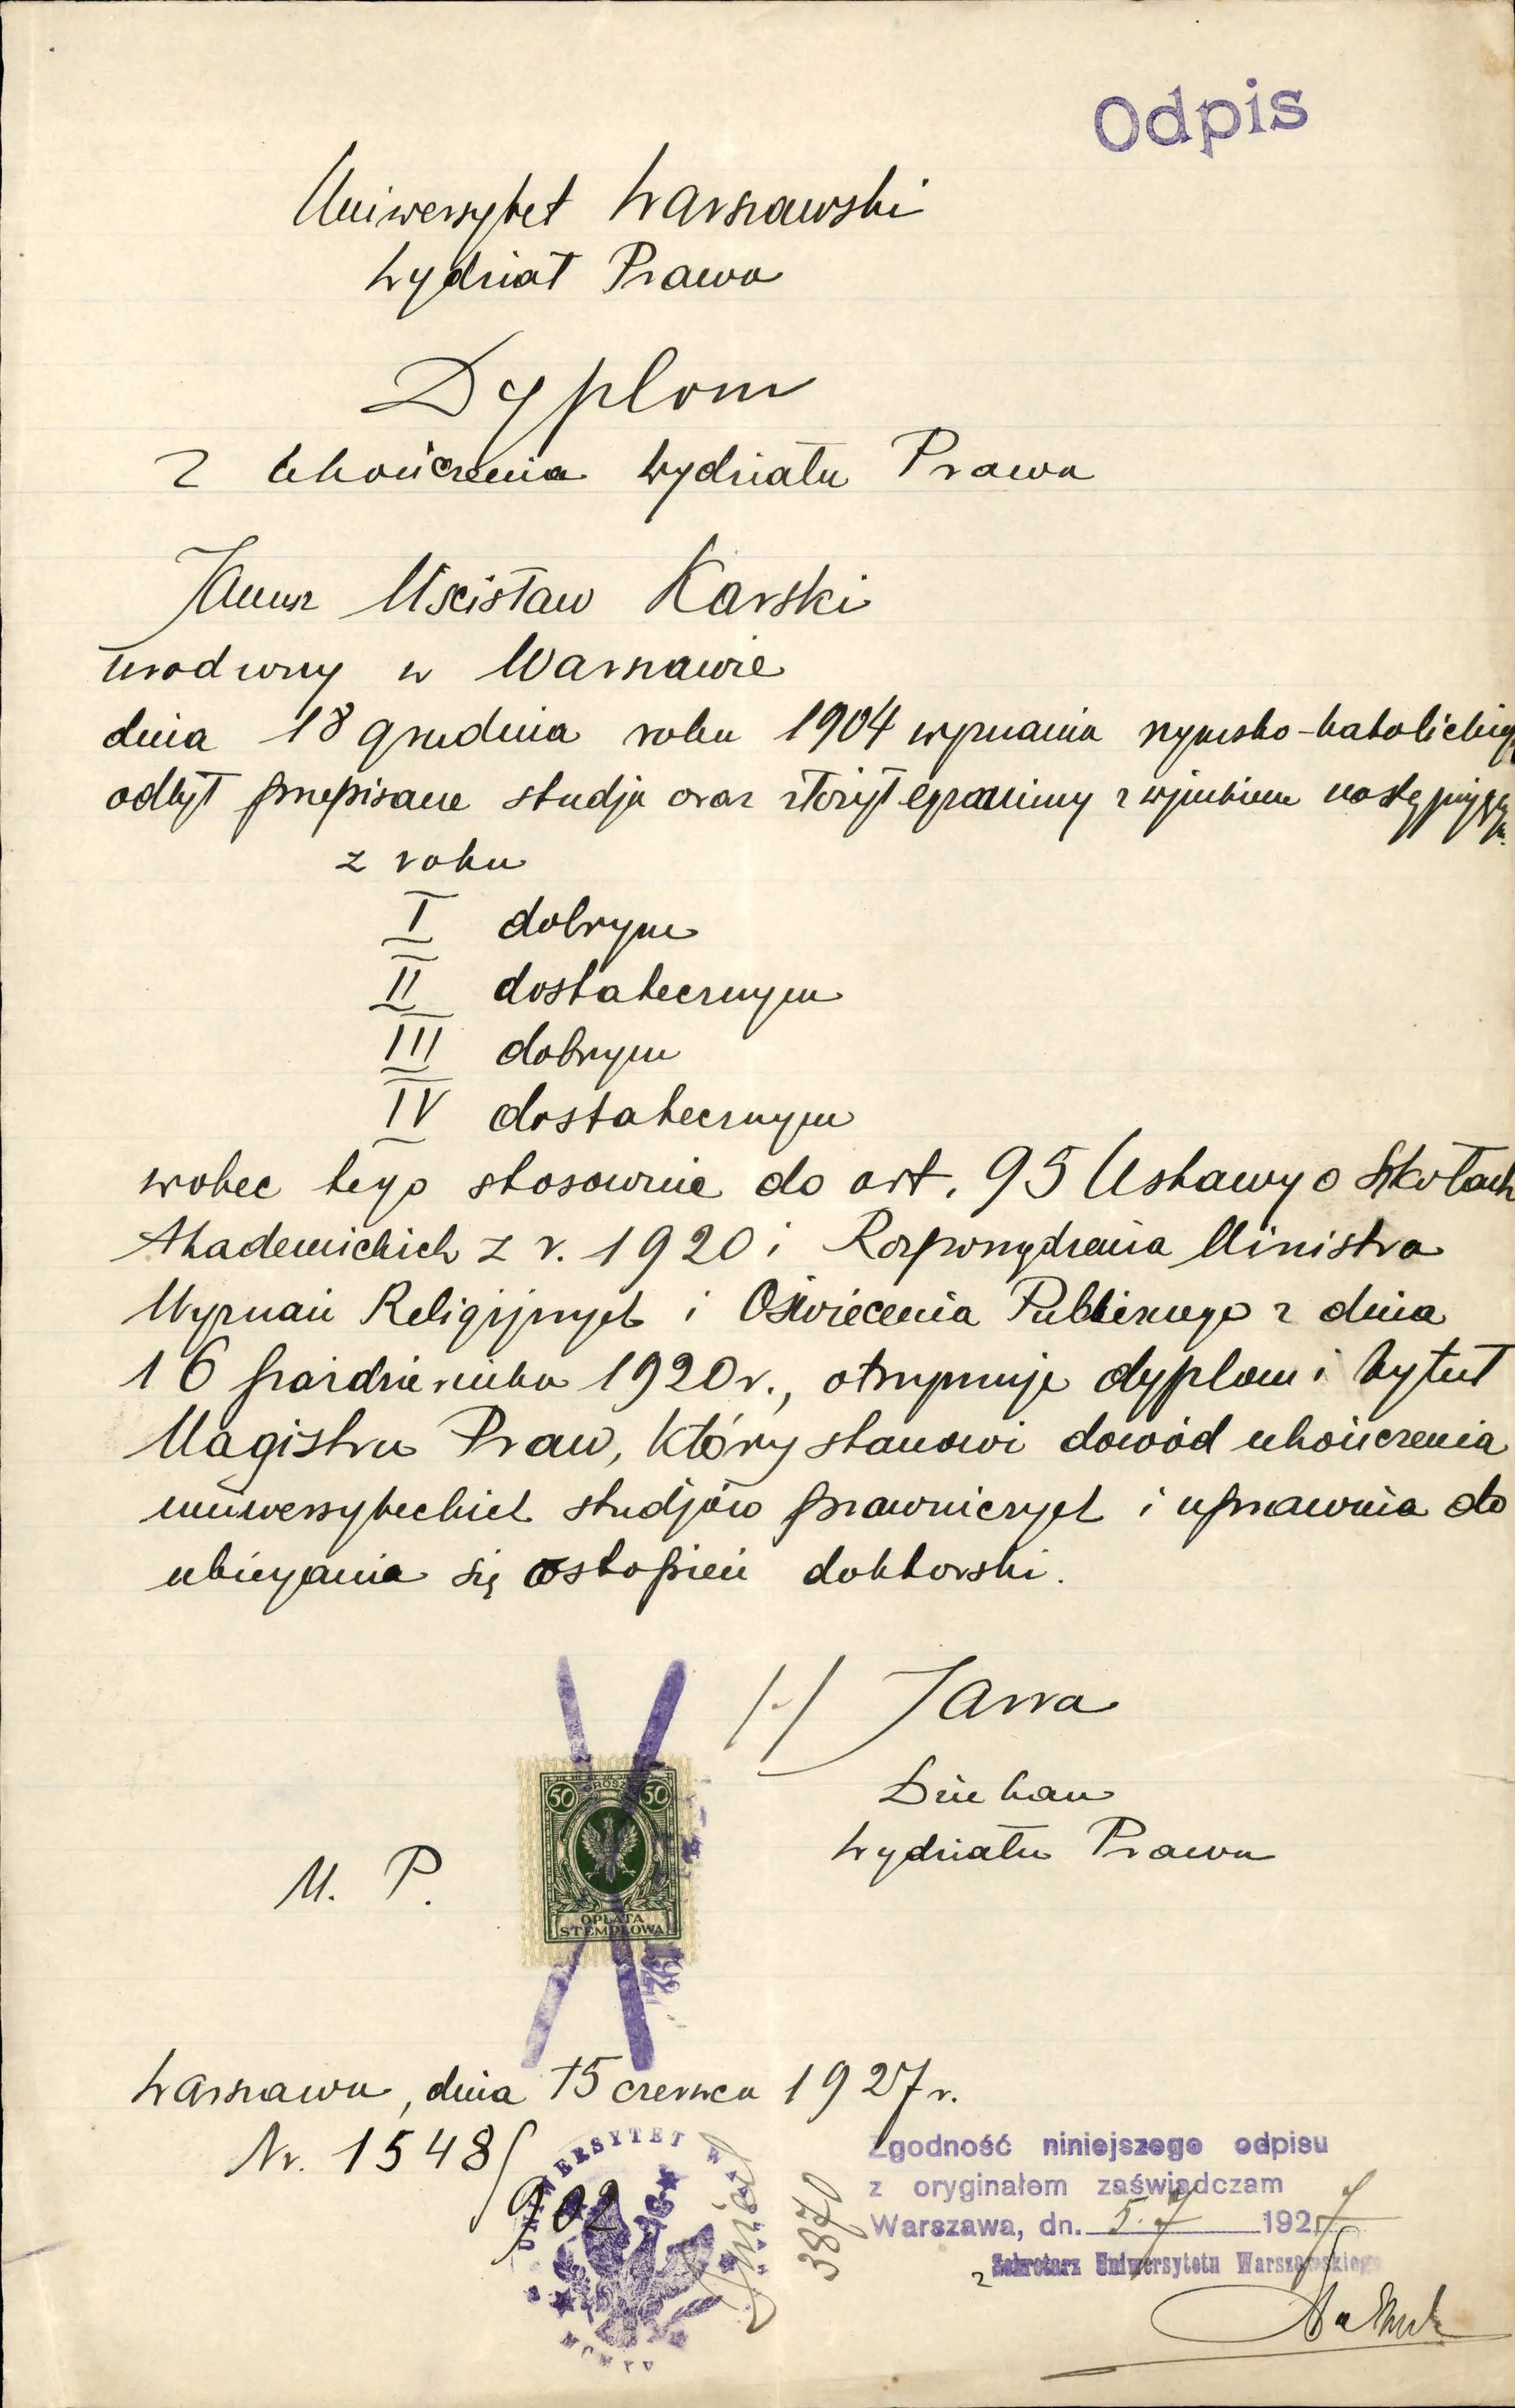 Odpis
Uniwersytet Warszawski
Wydział Prawa
Dyplom
z ukończenia Wydziału Prawa
Janusz Mscisław Karski
urodzony w Warszawie
dnia 18 grudnia roku 1904 wyznania rzymsko-katolickiego
odbył przepisane studja oraz złożył egzaminy z wynikiem następującym
z roku
I dobrym
II dostatecznym
III dobrym
IV dostatecznym
wobec tego stosownie do art. 95 Ustawy o Szkołach
Akademickich z r. 1920 i Rozporządzenia Ministra
Wyznań Religijnych i Oświecenia Publicznego z dnia
16 października 1920 r., otrzymuje dyplom i tytuł
Magistra Praw, który stanowi dowód ukończenia
uniwersyteckich studjów prawniczych i uprawnia do
ubiegania się o stopień doktorski.
/-/ Jarra
Dziekan
Wydziału Prawa
M. P.
50 GROSZY 50
OPŁATA
STEMPLOWA
Warszawa, dnia 15 czerwca 1927 r.
Nr. 1548/
902
UNIWERSYTET W
3870
Zgodność niniejszego odpisu
z oryginałem zaświadczam
Warszawa, dn. 5.7 1927
z Sekretarz Uniwersytetu Warszawskiego